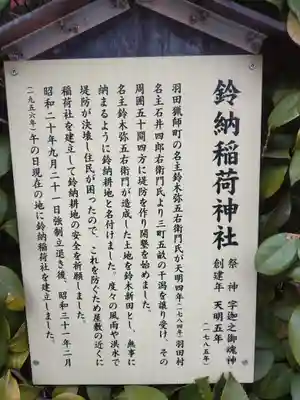 鈴納稲荷神社
祭神 宇迦之御魂神
創建年 天明五年
(一七八五年)
羽田猟師町の名主鈴木弥五右衛門氏が天明四年(一七八四年)羽田村
名主石井四郎右衛門氏より三町五畝の干潟を譲り受け、その
周囲五十間四方に堤防を作り開墾を始めました。
名主鈴木弥五右衛門が造成した土地を鈴木新田とし、無事に
納まるように鈴納耕地と名付けました。度々の風雨や洪水で
堤防が決壊し住民が困ったので、これを防ぐため屋敷の近くに
稲荷社を建立して鈴納耕地の安全を祈願しました。
昭和二十年九月二十一日強制立退き後、昭和三十一年二月
(一九五六年)午の日現在の地に鈴納稲荷社を建立しました。